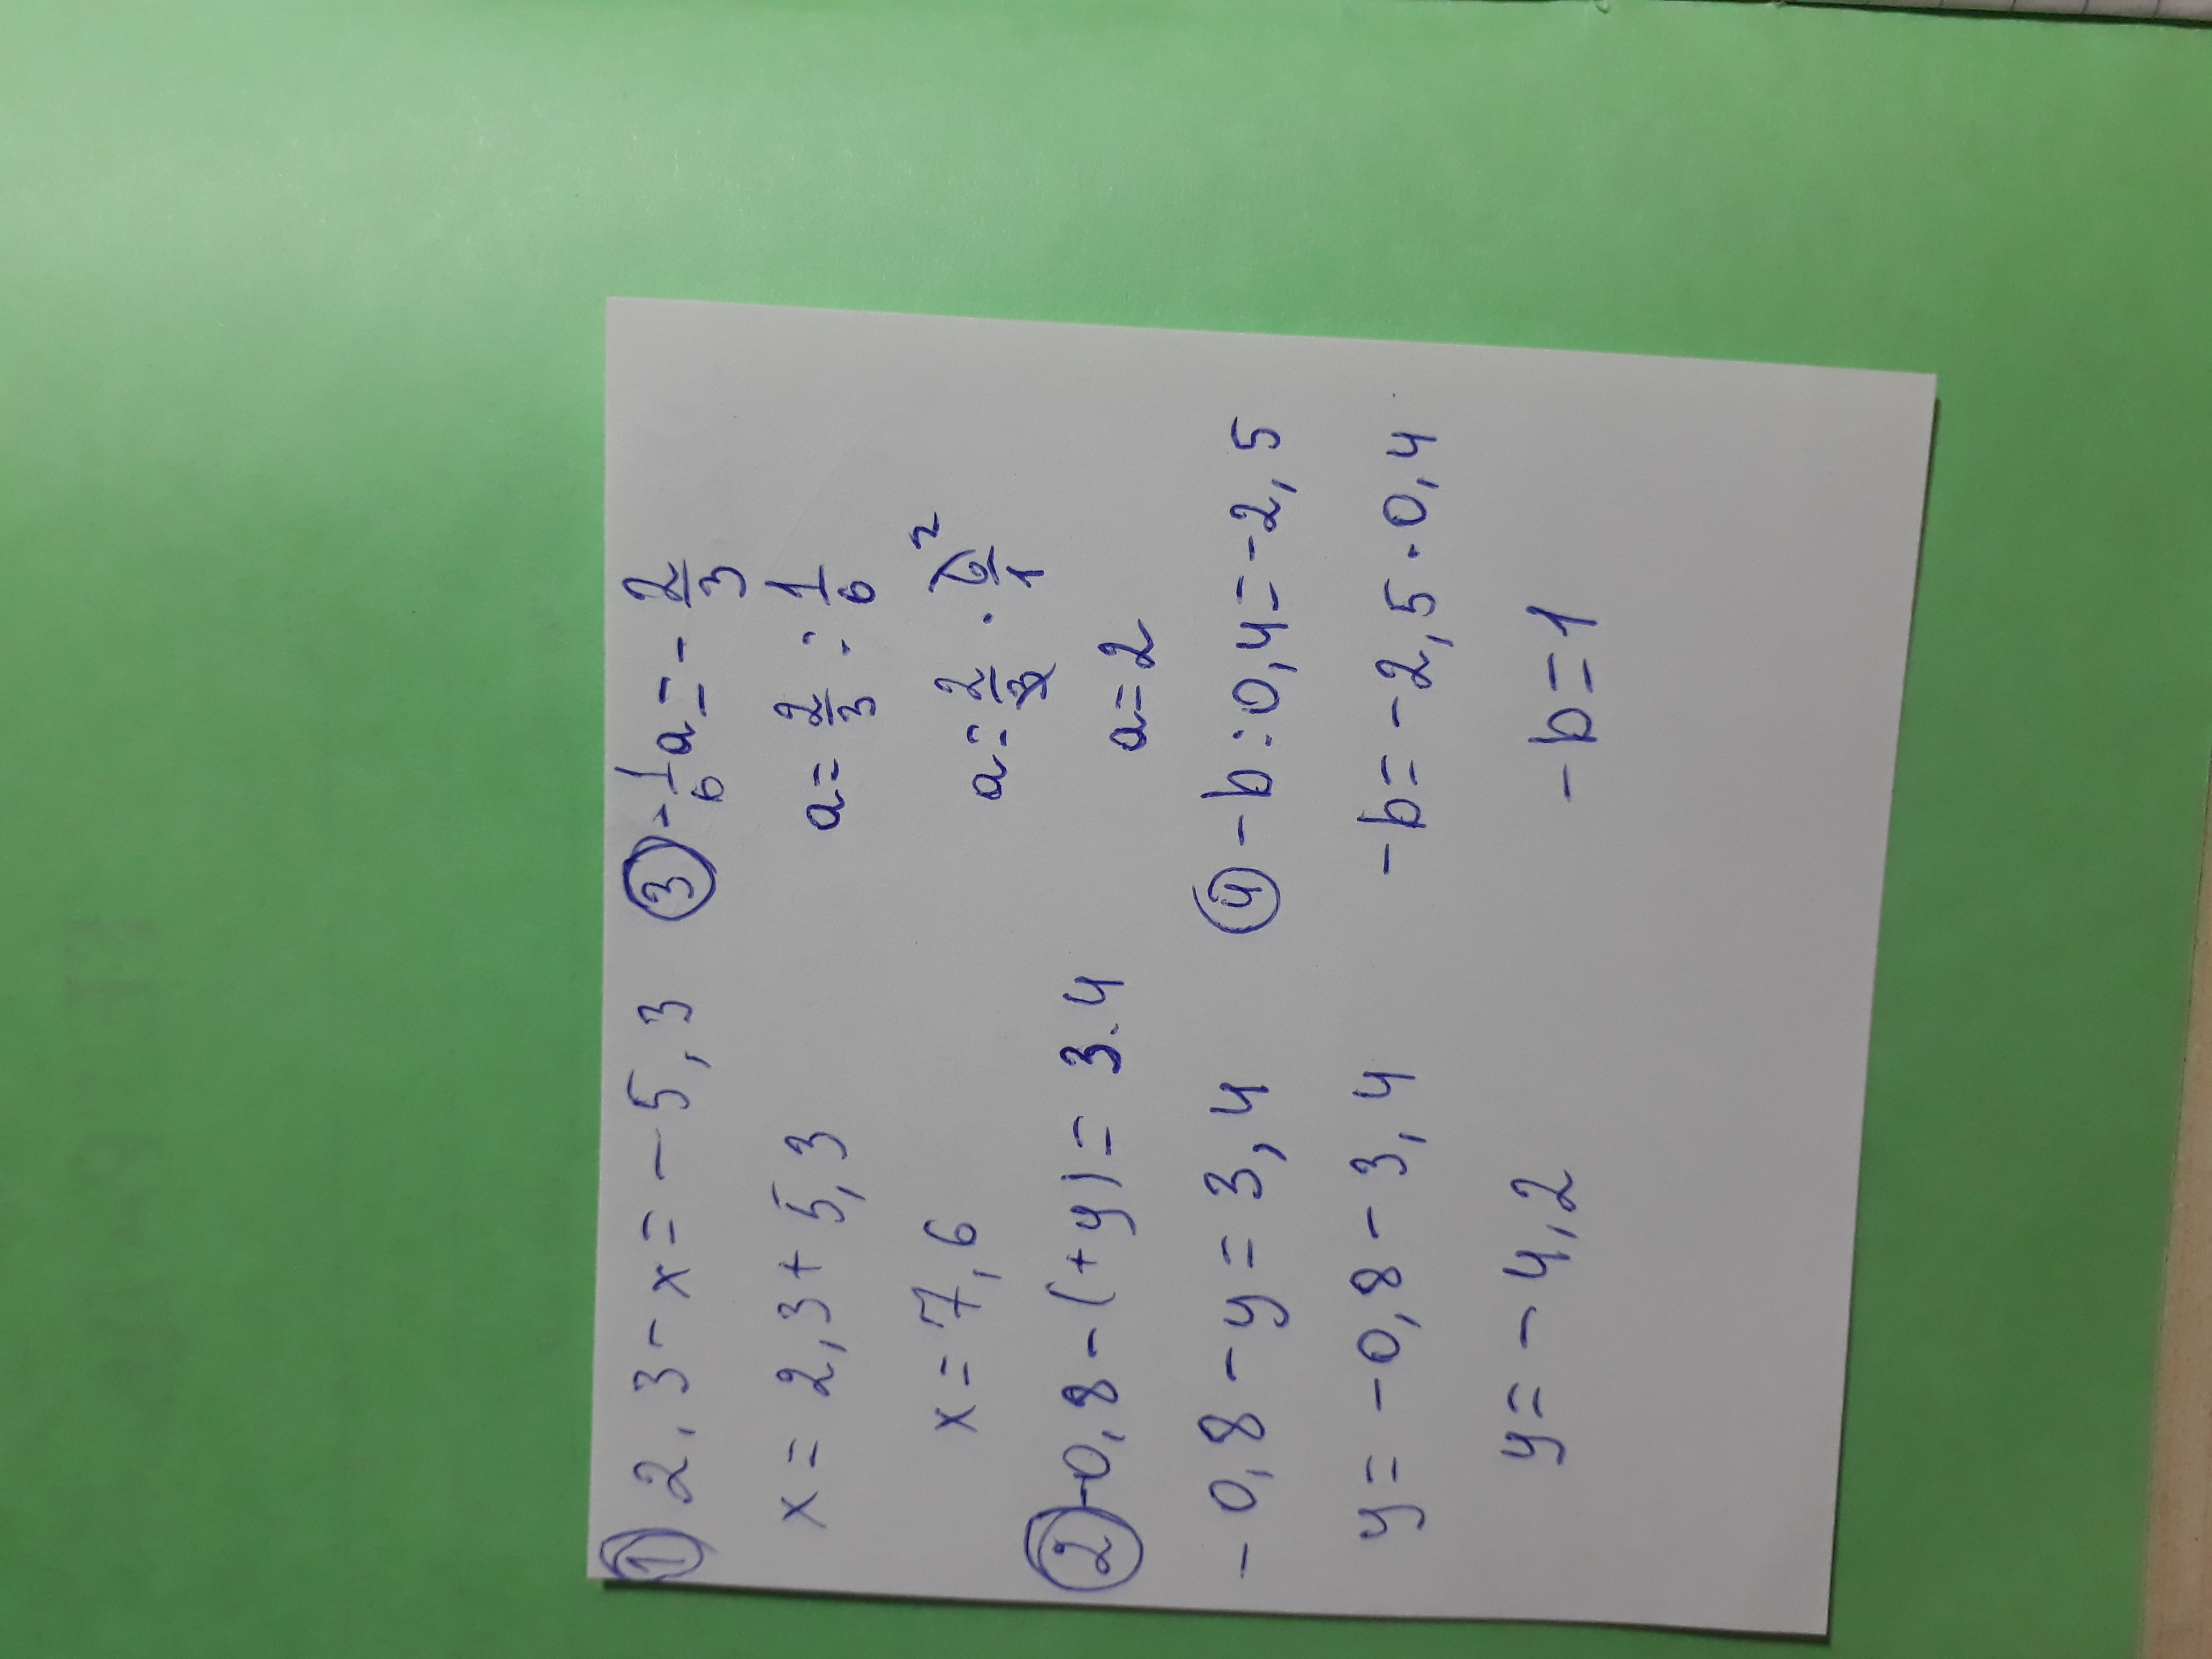 ① 2,3 - x = - 5,3
x = 2,3 + 5,3
x = 7,6
② -0,8 - (+y) = 3.4
- 0,8 - y = 3,4
y = - 0,8 - 3,4
y = - 4,2
③ - 1/6 a = - 2/3
a = 2/3 : 1/6
a = 2/3 · 6/1 2
a = 2
④ - b : 0,4 = -2,5
- b = - 2,5 · 0,4
- b = 1